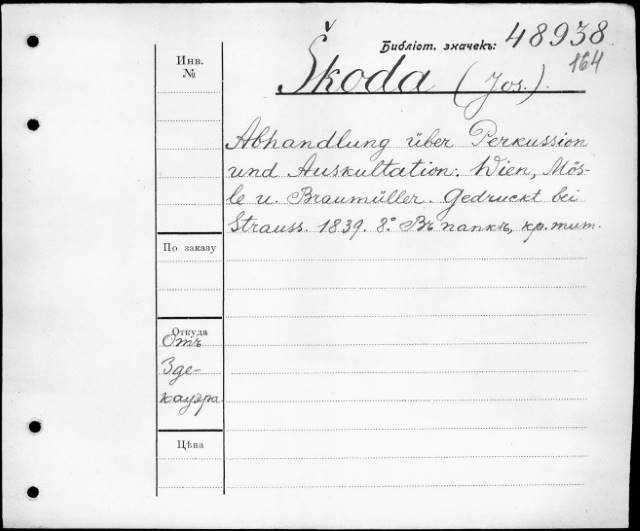 Библіот. значекъ: 48938
164
Инв.
№
Škoda (Jos.).
Abhandlung über Perkussion
und Auskultation. Wien, Mös-
le u. Braumüller. Gedruckt bei
Strauss. 1839. 8.° Въ папкѣ, кр. тит.
По заказу
Откуда
Отъ
Зде-
кауэра
Цѣна